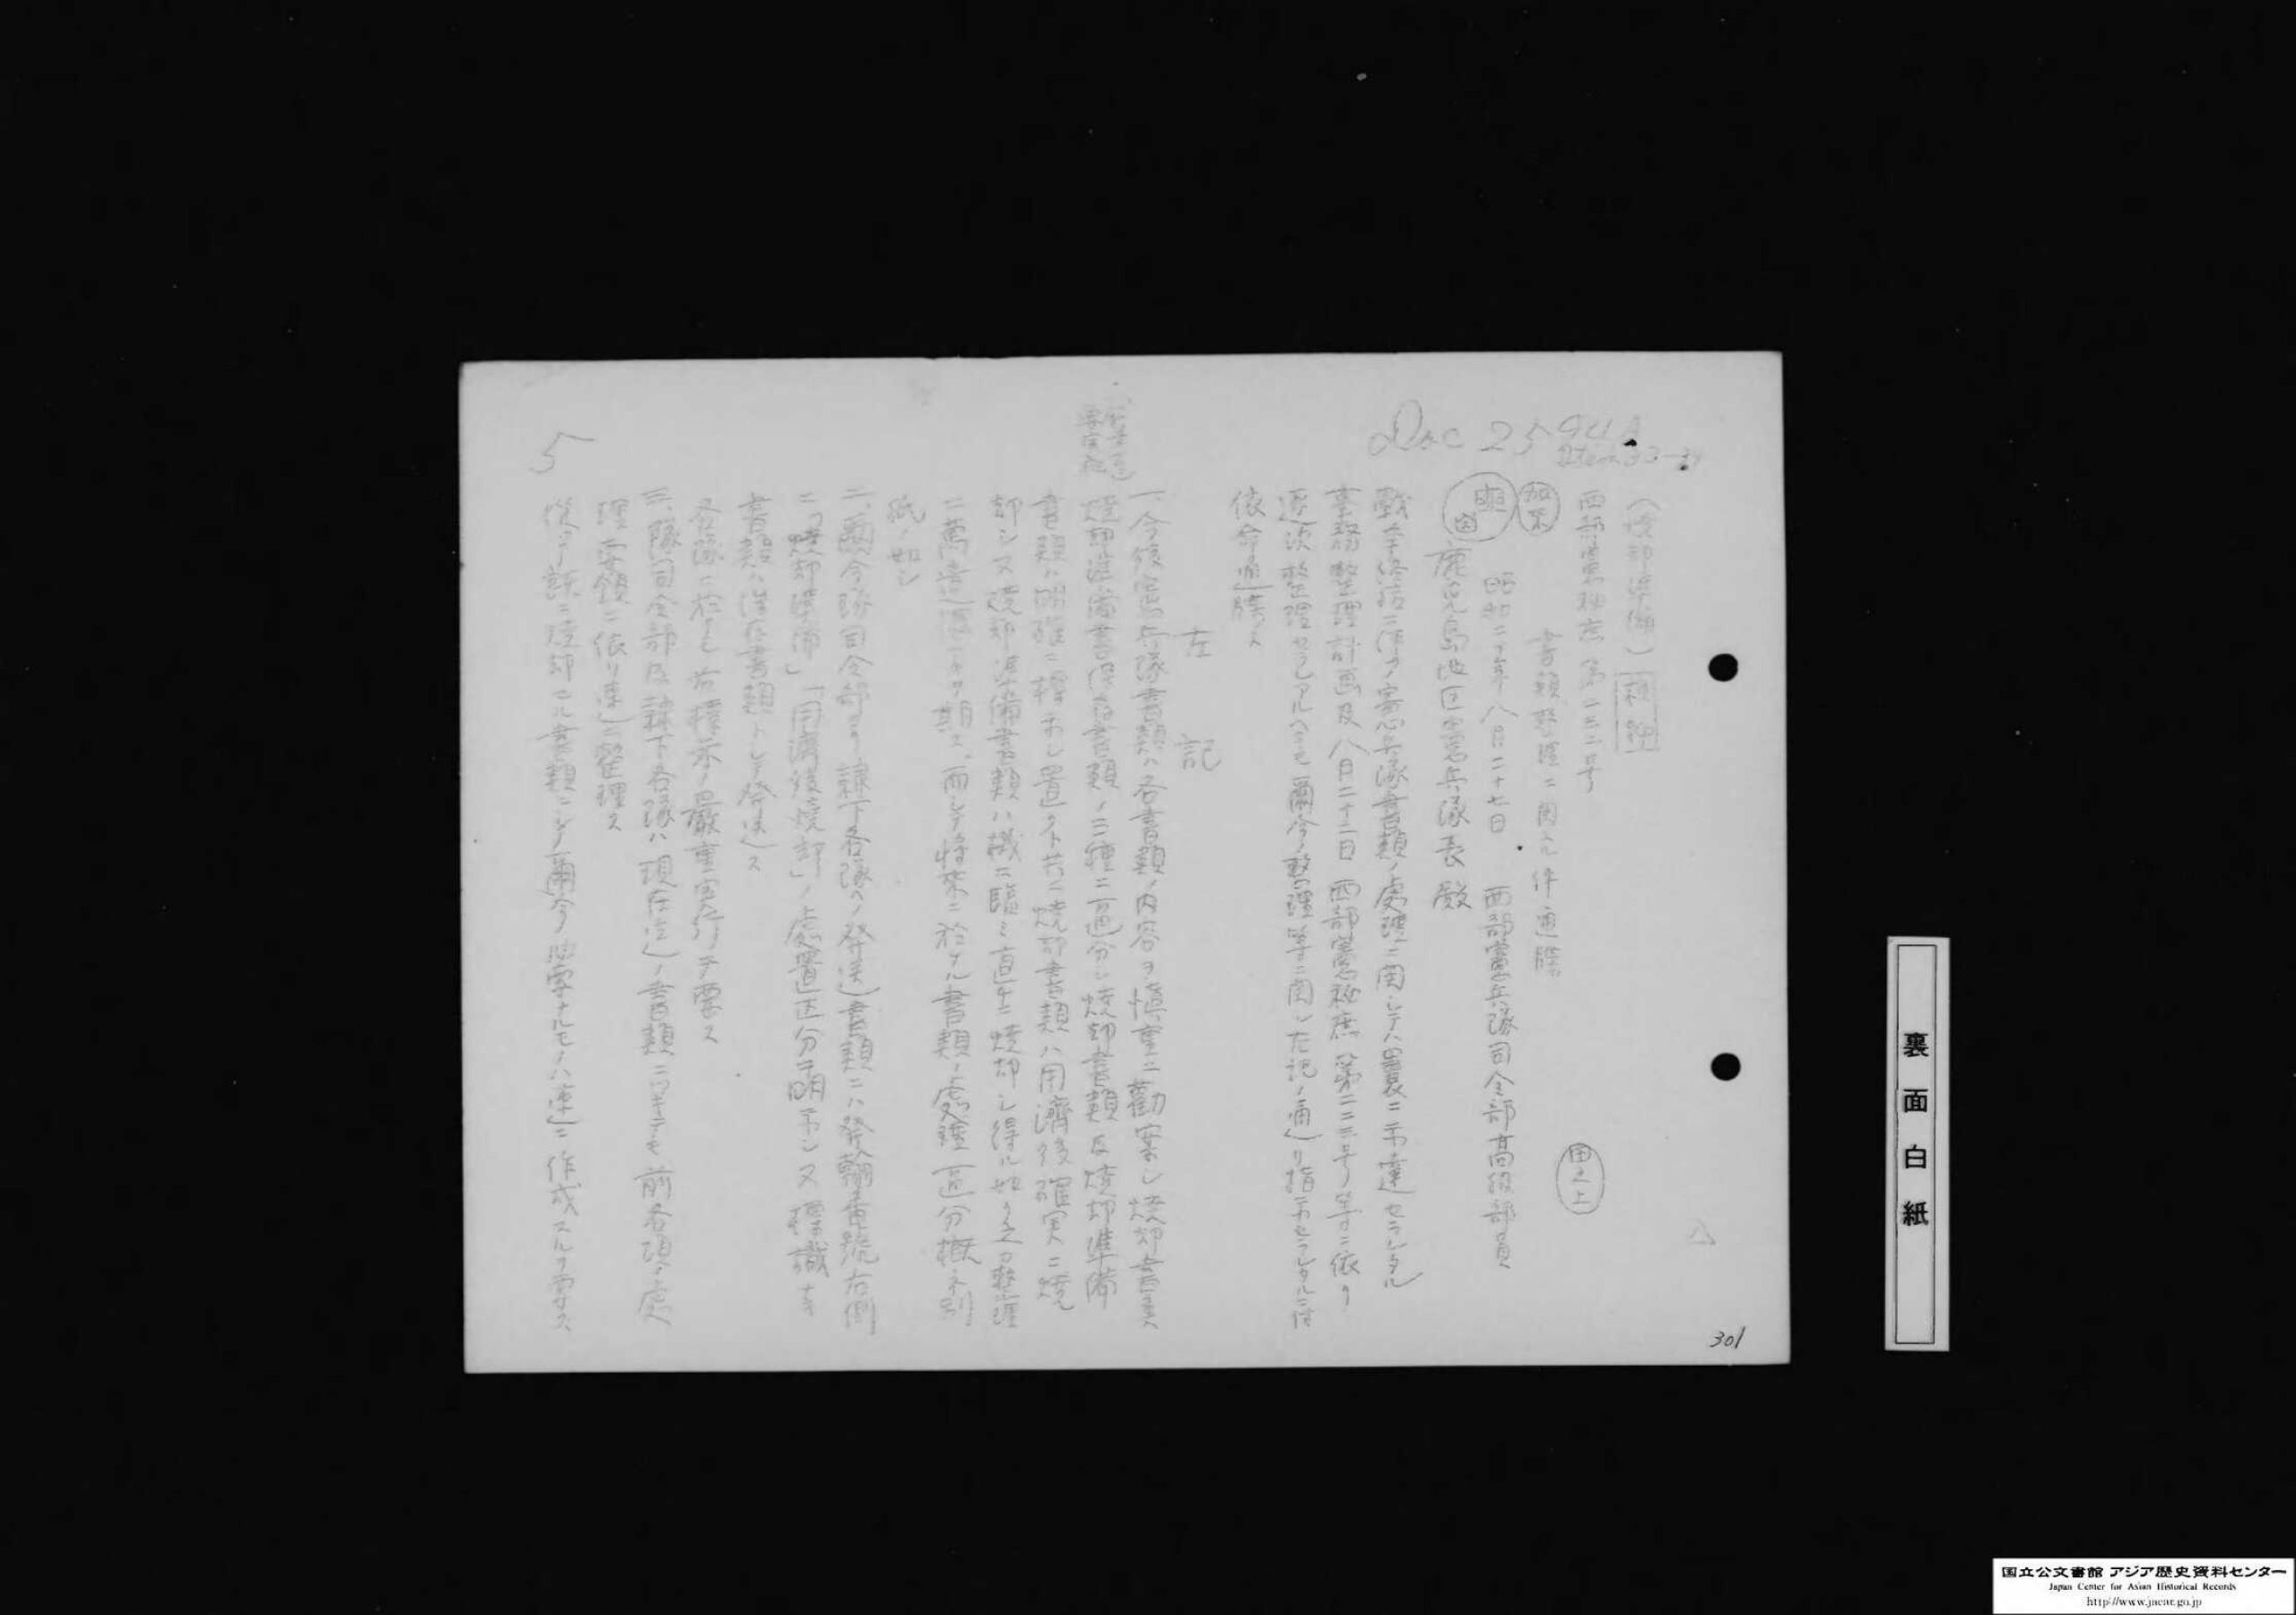 Doc 25
（焼却準備）
極秘
西部憲秘庶第二三二号
書類整理ニ関スル件通牒
昭和二十年八月二十七日 西部憲兵隊司令部高級部員
鹿児島地区憲兵隊長殿
戦争終結ニ伴フ憲兵隊書類ノ処理ニ関シテハ曩ニ示達セラレタル
事務整理計画及八月二十二日西部憲秘庶第二二三号等ニ依リ
逐次整理セラレアルヘキモ爾今ノ整理等ニ関シ左記ノ通リ指示セラレタルニ付
依命通牒ス
左記
一、今後憲兵隊書類ハ各書類ノ内容ヲ慎重ニ勘案シ焼却書類
焼却準備書類保存書類ノ三種ニ区分シ焼却書類及焼却準備
書類ハ明確ニ標示シ置クト共ニ焼却書類ハ用済後確実ニ焼
却シ又焼却準備書類ハ機ニ臨ミ直チニ焼却シ得ル如ク之カ整理
ニ萬遺憾ナキヲ期ス、而シテ将来ニ於ケル書類ノ処理区分概ネ別
紙ノ如シ
二、爾今隊司令部ヨリ隷下各隊ヘノ発送書類ニハ発翰番号右側
ニ「焼却準備」「用済後焼却」ノ処置区分ヲ明示シ又標識ナキ
書類ハ保存書類トシテ発送ス
各隊ニ於テモ右標示ノ厳重実行ヲ要ス
三、隊司令部及隷下各隊ハ現在迄ノ書類ニ付テモ前各項ノ処
理要領ニ依リ速ニ整理ス
従ツテ既ニ焼却セル書類ニシテ爾今必要ナルモノハ速ニ作成スルヲ要ス
5
田之上
301
裏面白紙
国立公文書館 アジア歴史資料センター
Japan Center for Asian Historical Records
http://www.jacar.go.jp